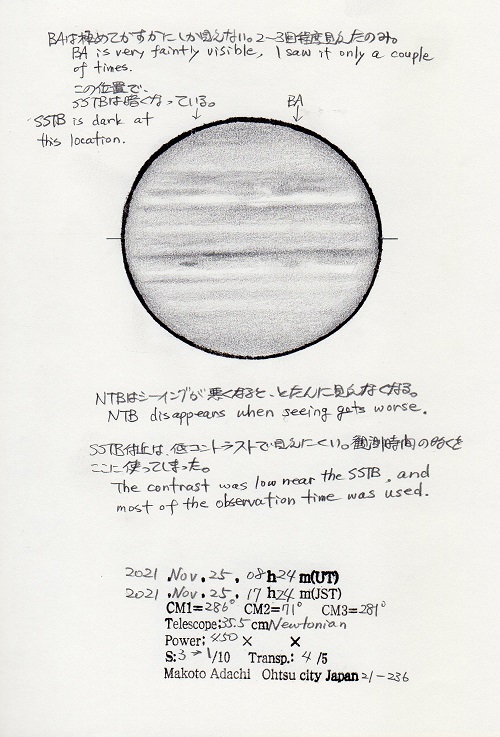 BAは極めてかすかにしか見えない。2〜3回程度見えたのみ。
BA is very faintly visible, I saw it only a couple
of times.
この位置で、
SSTBは暗くなっている。
SSTB is dark at
this location.
BA
NTBはシーイングが悪くなると、とたんに見えなくなる。
NTB disappears when seeing gets worse.
SSTB付近は、低コントラストで見えにくい。観測時間の多くを
ここに使ってしまった。
The contrast was low near the SSTB, and
most of the observation time was used.
2021 .Nov. 25, 08h24 m(UT)
2021 .Nov. 25, 17 h24 m(JST)
CM1=286° CM2=71° CM3=281°
Telescope:35.5cm/Newtonian
Power; 450× ×
S:3→1/10 Transp.: 4/5
Makoto Adachi Ohtsu city Japan 21-236